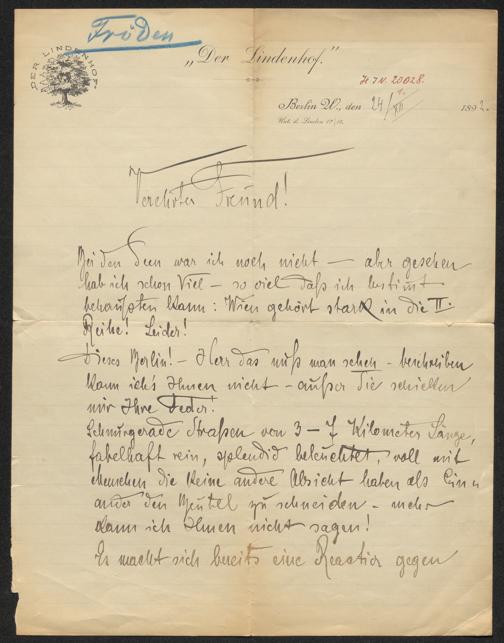 Friden
DER LINDENHOF
„Der Lindenhof."
H.I.N. 20028.
Berlin W., den 24/XII 1892.
Unt. d. Linden 17/18.
Verehrter Freund!
Bei den war ich noch nicht — aber gesehen
hab ich schon Viel — so viel daß ich bestimt
behaupten kann: Wien gehört stark in die II.
Reihe! Leider!
Dieses Berlin! — Herr das muß man sehen — beschreiben
kann ich's Ihnen nicht — außer Sie schicken
mir Ihre Feder!
Schnurgerade Straßen von 3 — 7 Kilometer Länge,
fabelhaft rein, splendid beleuchtet, voll mit
Menschen die keine andere Absicht haben als Ein=
ander den Beutel zu schneiden — mehr
kann ich Ihnen nicht sagen!
Es macht sich bereits eine Reaction gegen